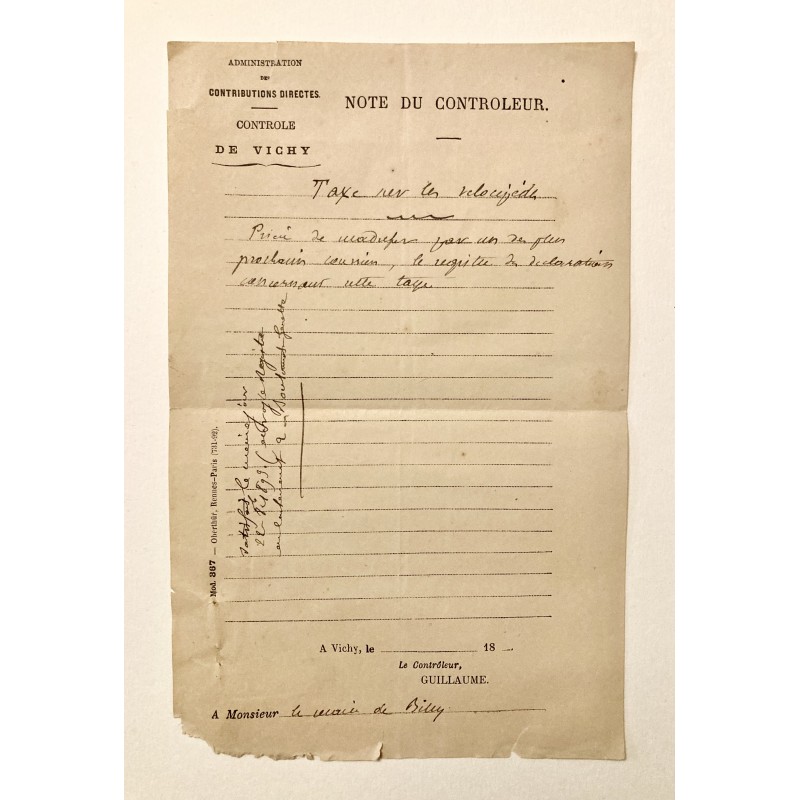 ADMINISTRATION
DES
CONTRIBUTIONS DIRECTES.
CONTROLE
DE VICHY
NOTE DU CONTROLEUR.
Taxe sur les velocipèdes
Prière de m'adresser par un des plus
prochain courrier, le registre des déclarations
concernant cette taxe
satisfait le même jour
22 1893
Mod. 367 — Oberthür, Rennes-Paris (731-92).
A Vichy, le 18
Le Contrôleur,
GUILLAUME.
A Monsieur le maire de Billy